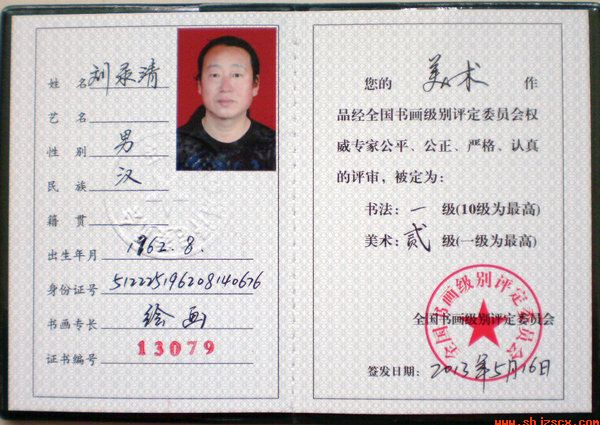 姓名 刘录清
艺名
性别 男
民族 汉
籍贯
出生年月 1962.8.
身份证号 512225196208140676
书画专长 绘画
证书编号 13079
您的 美术 作
品经全国书画级别评定委员会权
威专家公平、公正、严格、认真
的评审，被定为：
书法：一 级(10级为最高)
美术：贰 级(一级为最高)
全国书画级别评定委员会
全国书画级别评定委员会
签发日期：2013年5月16日
www.shjzscx.com